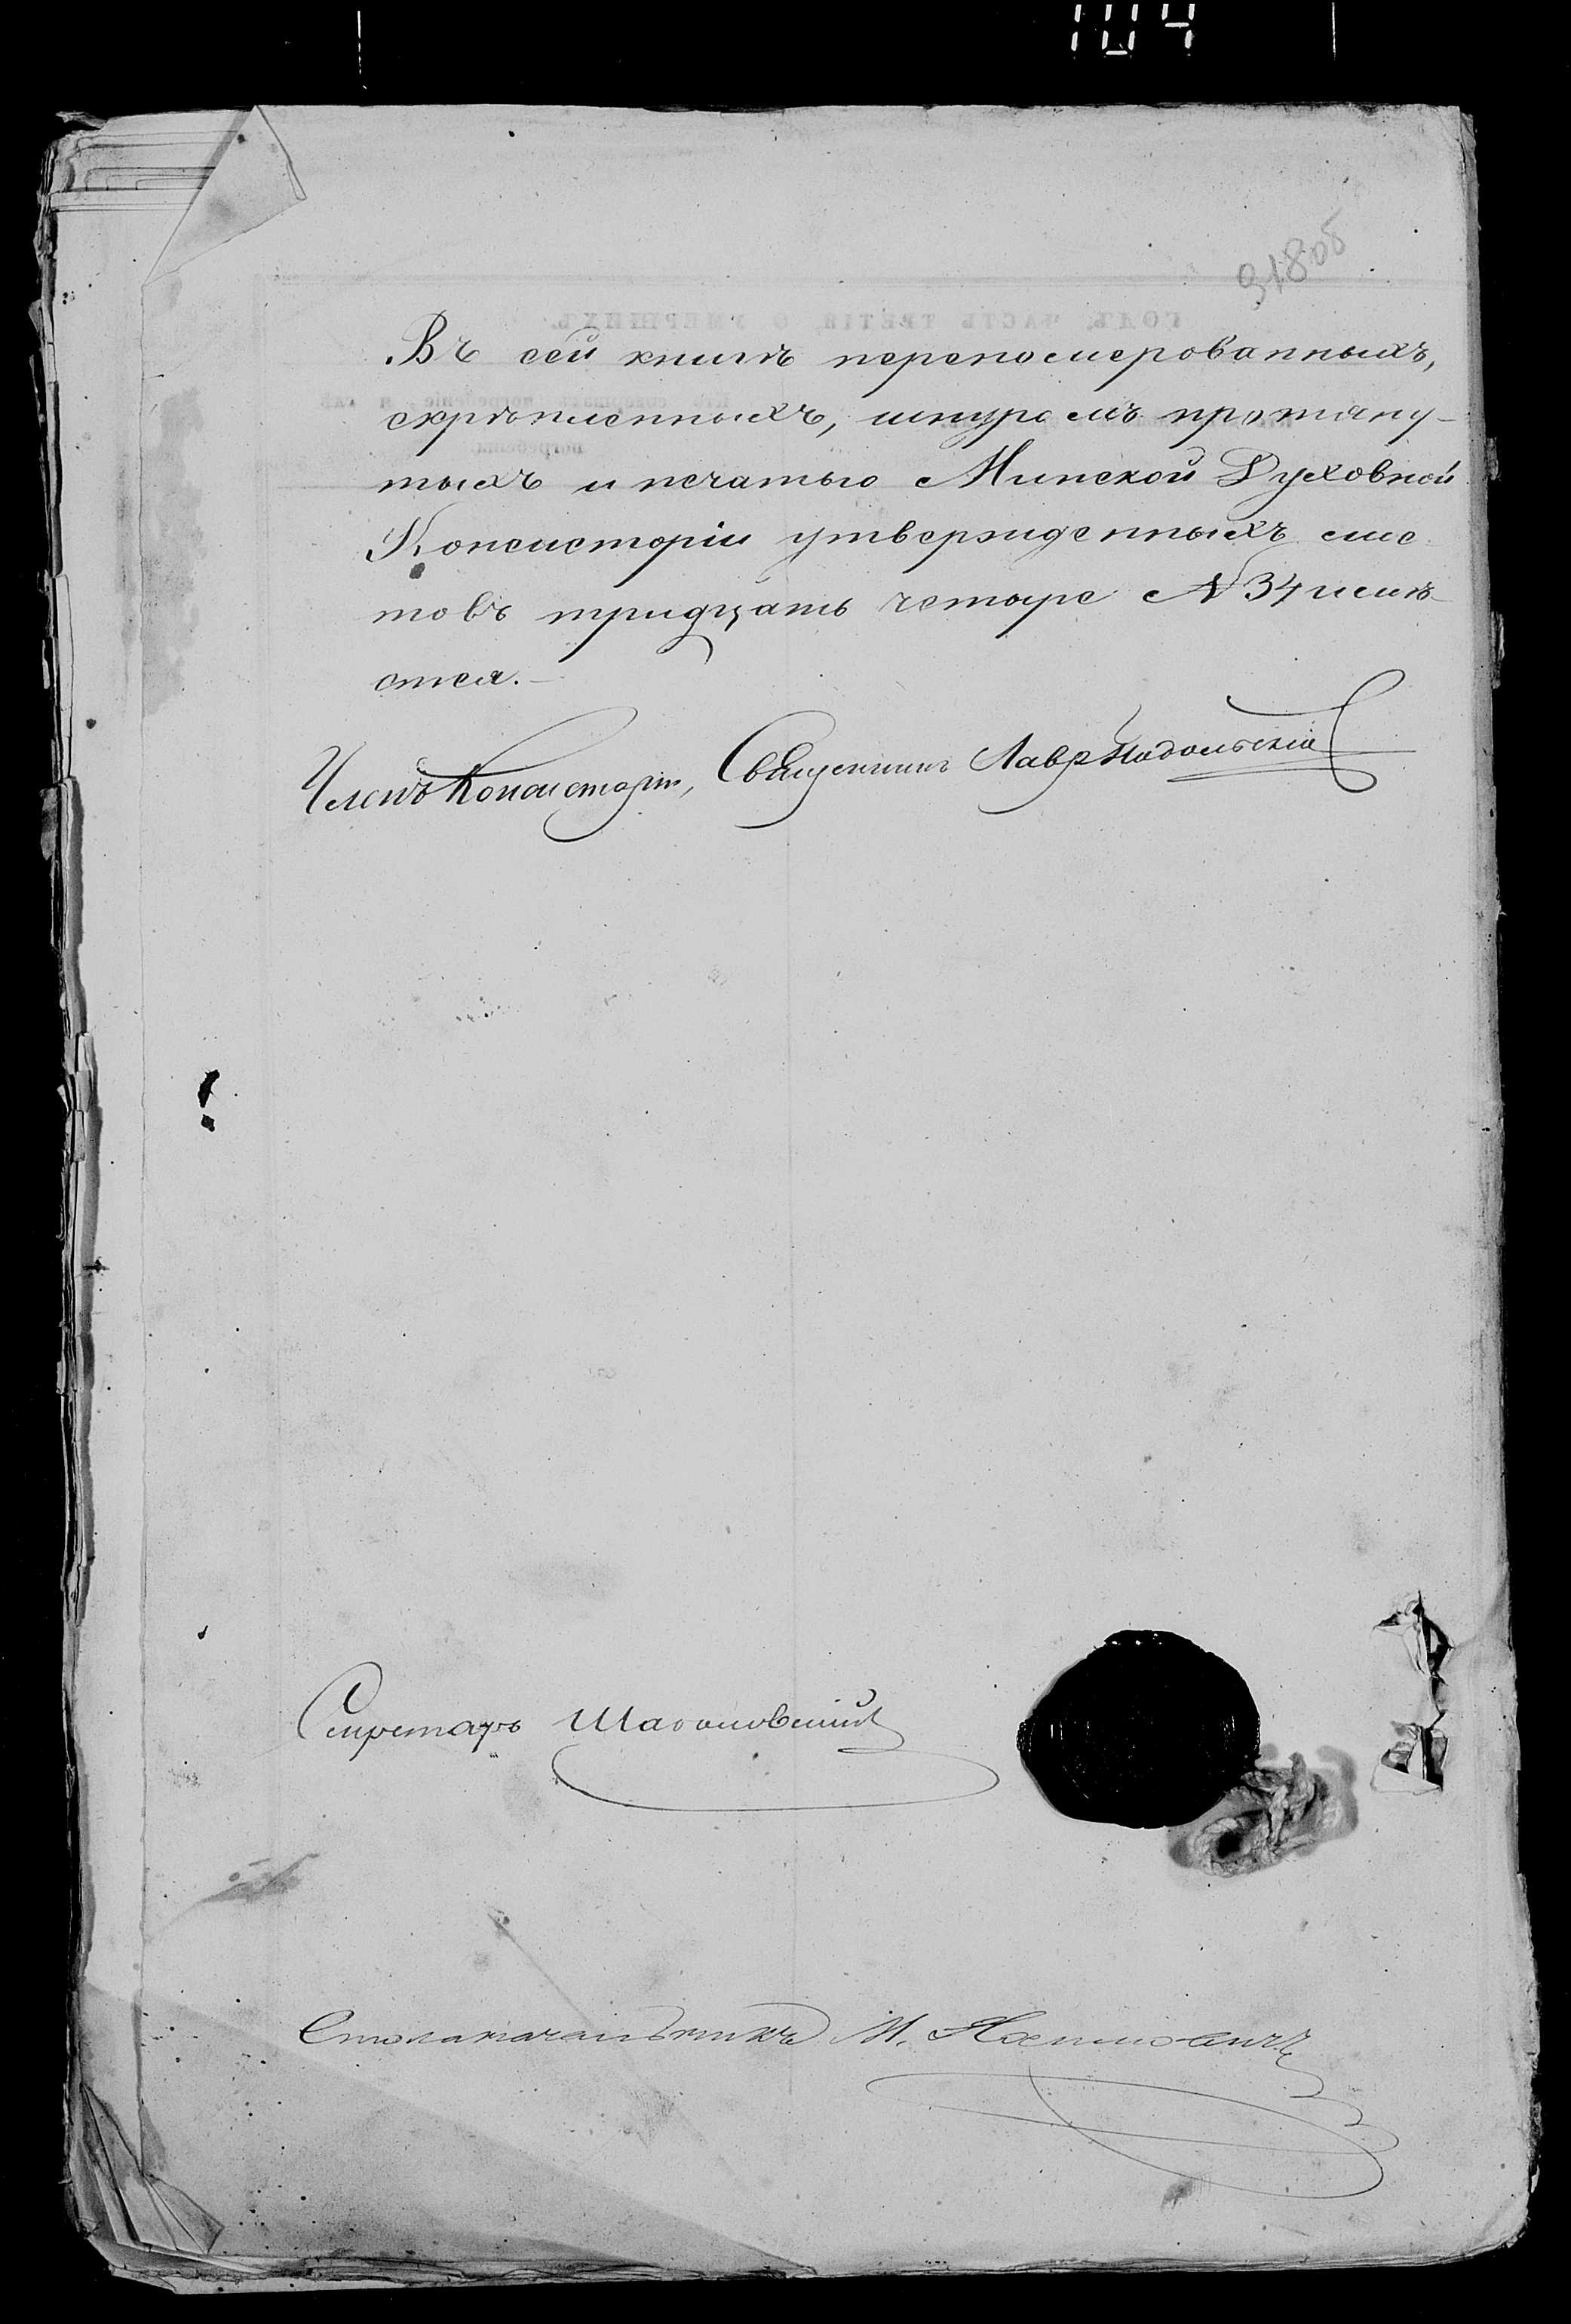 104
318об
Въ сей книгѣ перепомерованныхъ,
скрѣпленныхъ, шнуромъ протяну-
тыхъ и печатью Минской Духовной
Консисторіи утвержденныхъ лис-
товъ тридцать четыре № 34 имѣ-
ется.
Членъ Консисторіи, Священникъ Лавръ Подольскій
Секретарь
Столоначальникъ М.